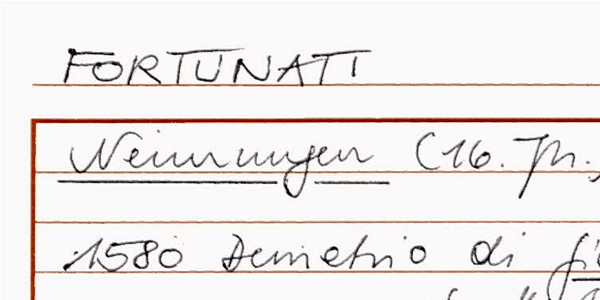 FORTUNATI
Nennungen (16. Jh.,
1580 Demetrio di